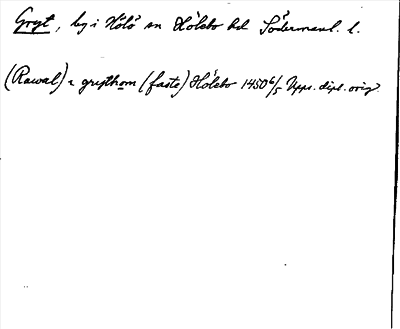 Gryt, by i Hölö sn Hölebo hd Södermanl. l.
(Rawal) i grythom (faste) Hölebo 1450 6/5 Upps. dipl. orig.